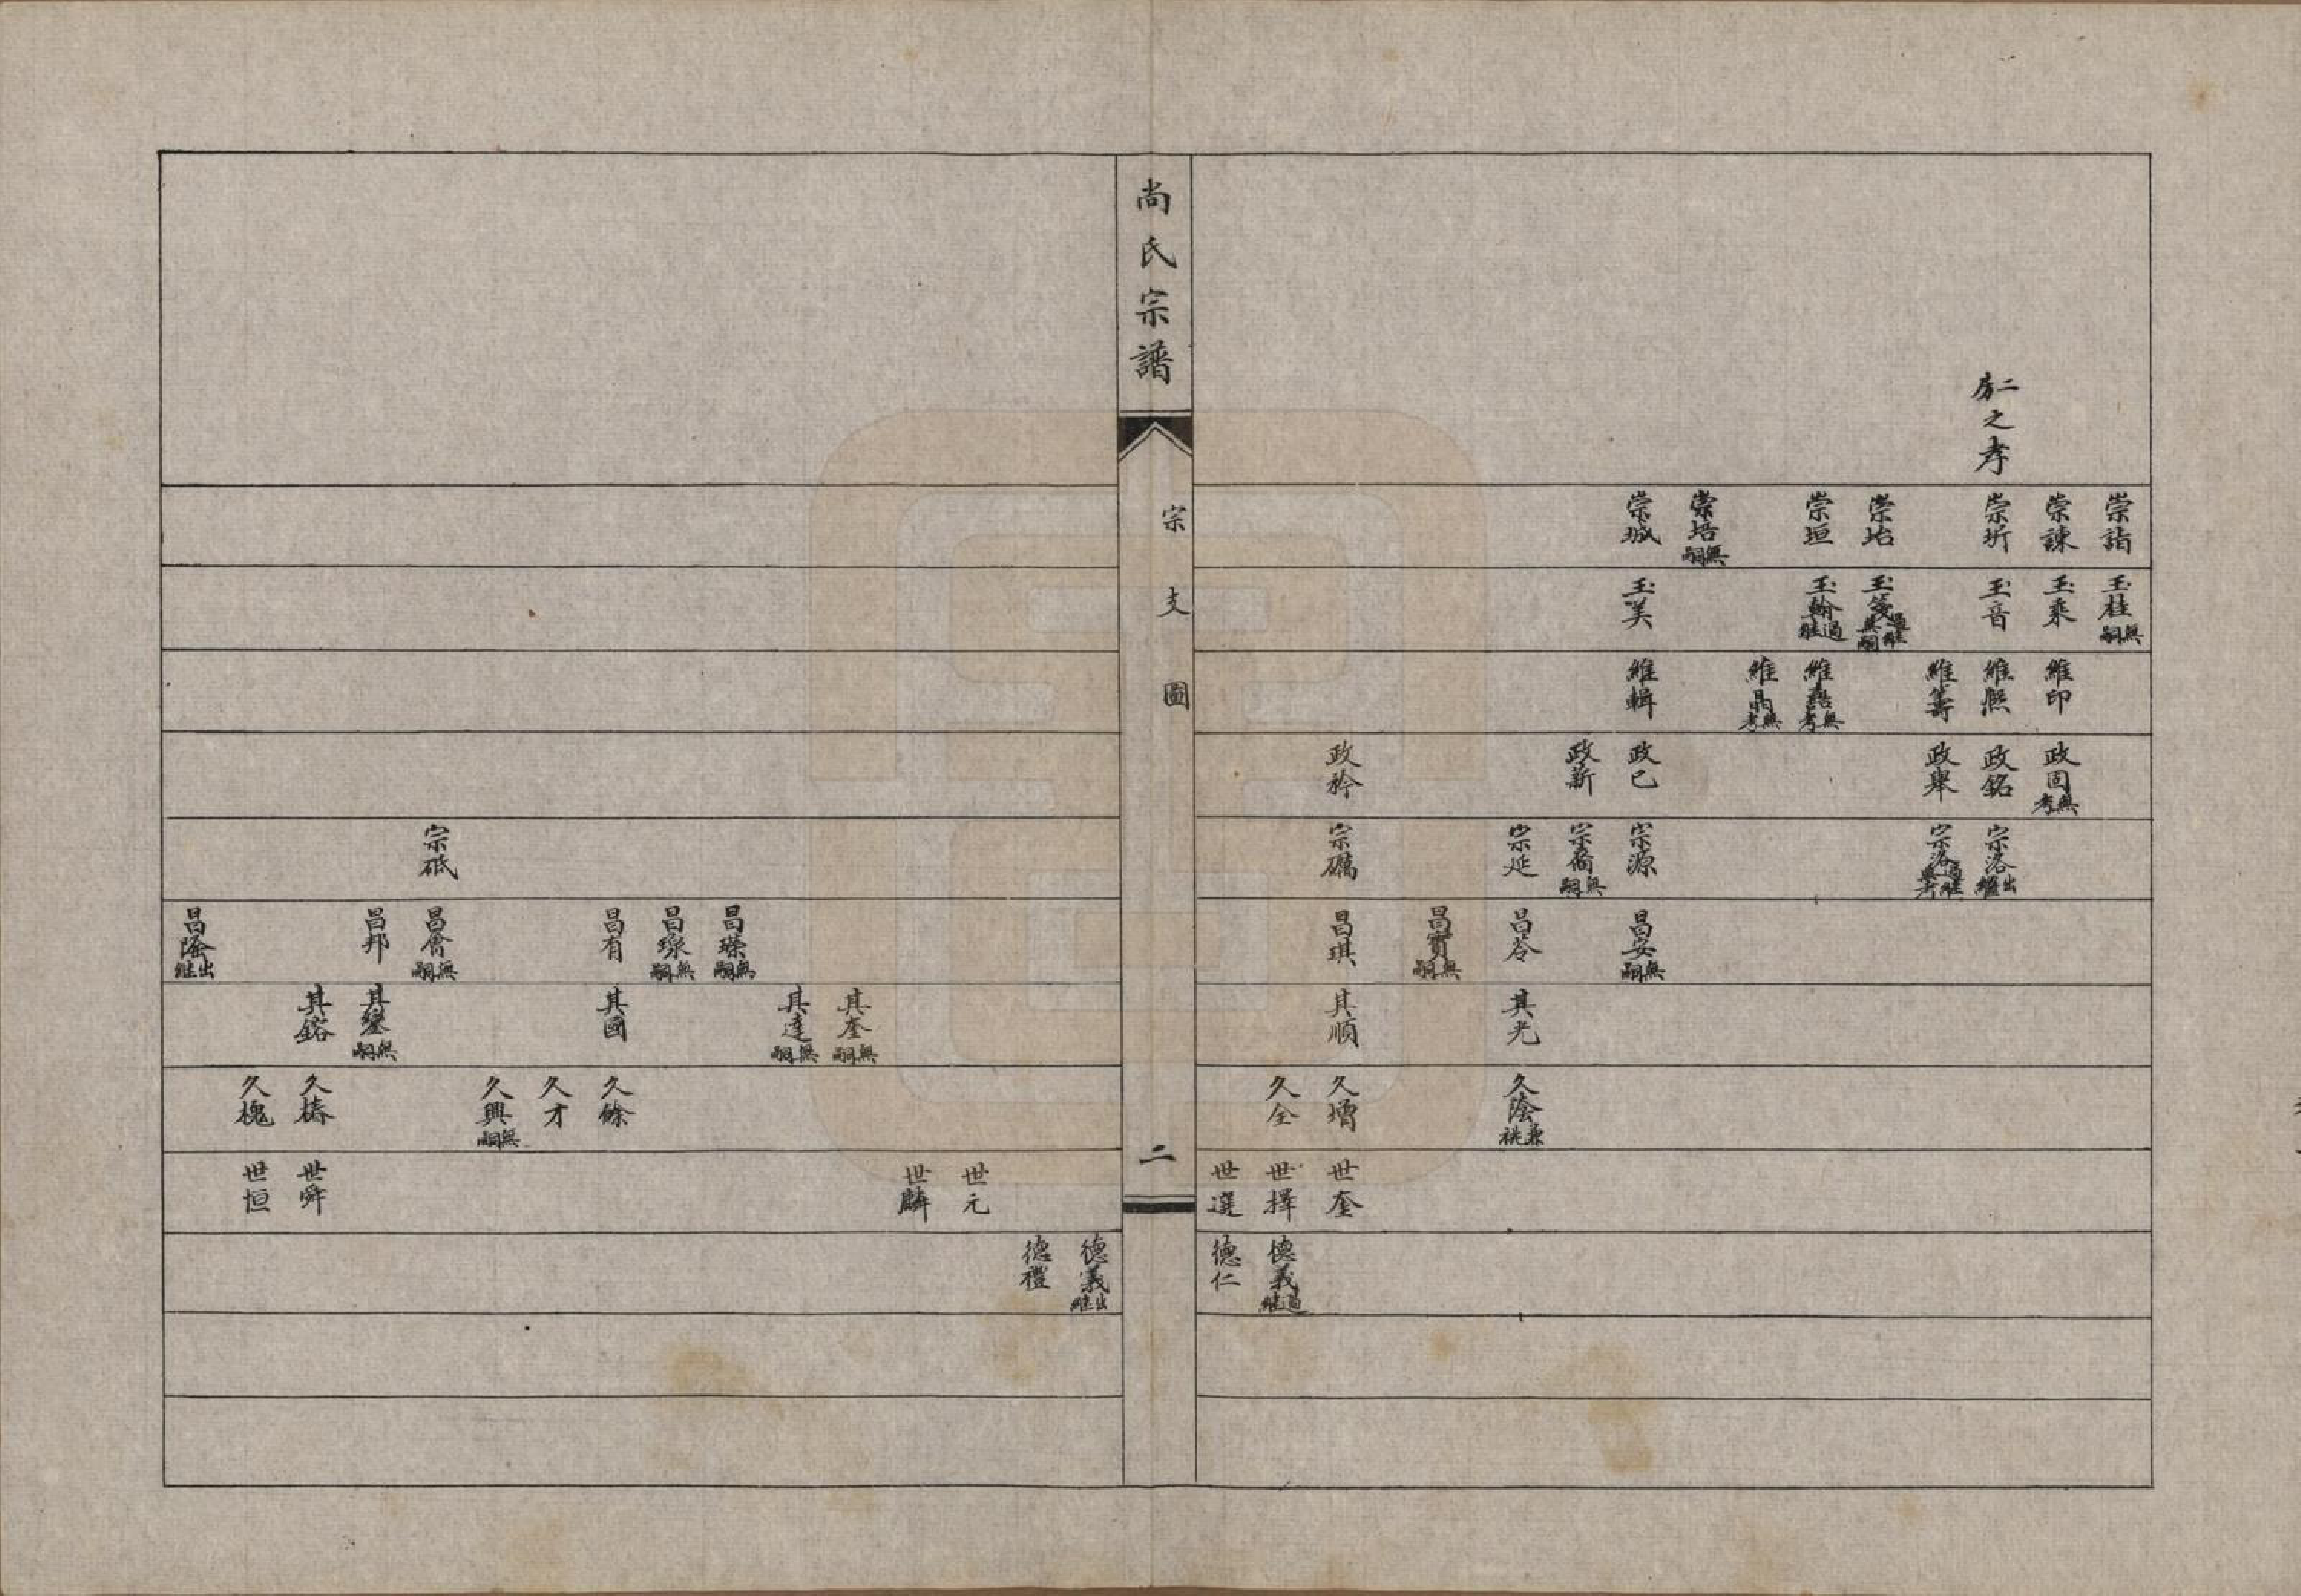 二房之孝
崇詣 崇諫 崇圻 崇垢 崇垣 崇培無嗣 崇城
玉桂無嗣 玉乘 玉音 玉箋過繼無嗣 玉翰過繼 玉美
維印 維熙 維籌 維喆無考 維晶無考 維輯
政固無考 政銘 政舉 政已 政新 政矜
宗洛出繼 宗洛過繼無考 宗源 宗裔無嗣 宗延 宗礪
昌安無嗣 昌苓 昌寳無嗣 昌琪
其光 其順
久蔭兼祧 久增 久全
世奎 世擇 世選
德義過繼 德仁
尚氏宗譜
宗支圖
二
宗砥
昌璨無嗣 昌瑔無嗣 昌有 昌會無嗣 昌邦 昌隆出繼
其奎無嗣 其達無嗣 其國 其鋆無嗣 其鎔
久餘 久才 久興無嗣 久檮 久槐
世元 世麟 世舜 世恒
德義出繼 德禮